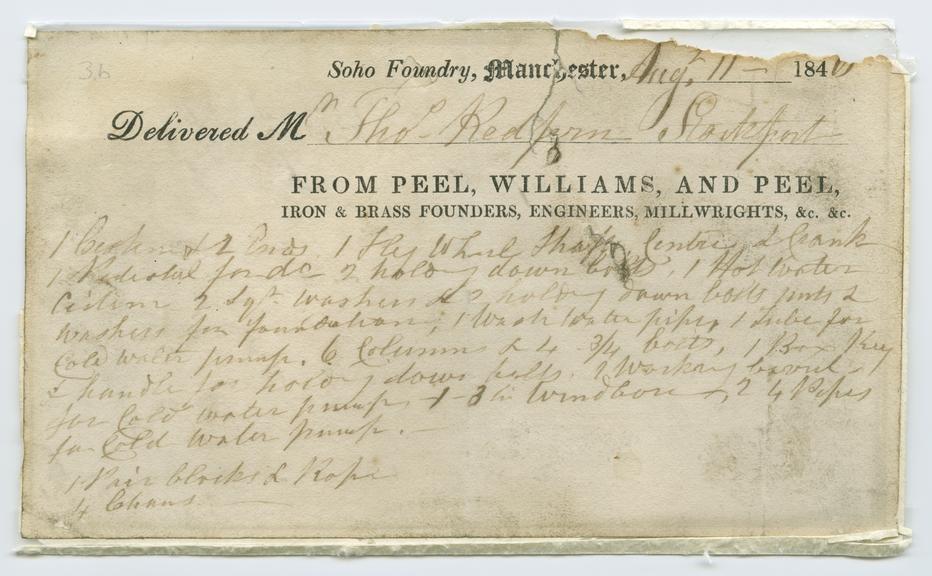 3.b
Soho Foundry, Manchester, Augt. 11 — 184
Delivered Mr Thos Redfern Stockport
FROM PEEL, WILLIAMS, AND PEEL,
IRON & BRASS FOUNDERS, ENGINEERS, MILLWRIGHTS, &c. &c.
1 & 2 Ends. 1 Fly Wheel Shaft, Centre, & Crank
1 Pedestal for do 2 holdg down bolts, 1 Hot Water
Cistern 2 Sqr. washers & 2 holdg down bolts nuts &
washers for foundation, 1 Wash Water pipe, 1 Tube for
Cold water pump. 6 Columns & 4 3/4 bolts, 1 Box Key
& handle for holdg down bolts. 1 Working barrel
for Cold water pump 1 - 3 in Windbore 2 4 Pipes
for Cold Water pump. —
1 Pair blocks & Rope
4 Chans